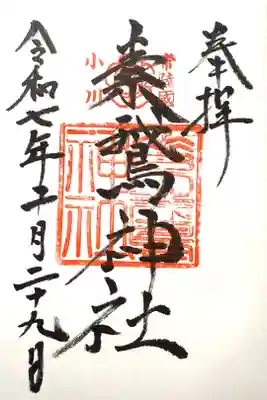 奉拝
常陸國
小川
素鵞神社
令和七年月二十九日